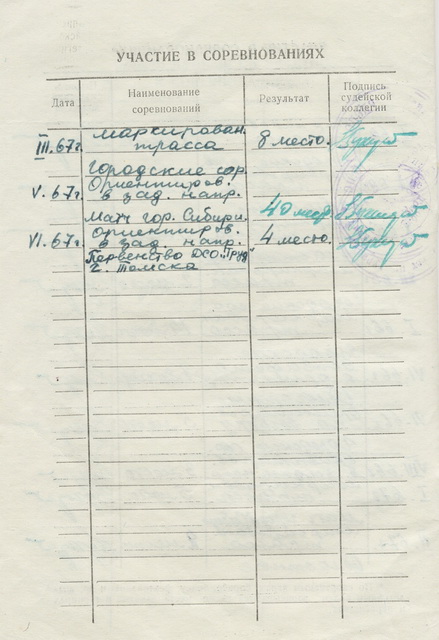 УЧАСТИЕ В СОРЕВНОВАНИЯХ
Дата Наименование соревнований Результат Подпись судейской коллегии
III.67г. маркирован. 8 место.
трасса
городские сор.
V.67г. Ориентиров.
в зад. напр.
Матч гор. Сибири. 40 мест
VI.67г. ориентиров. 4 место.
в зад. напр.
Первенство ДСО "Труд"
г. Томска